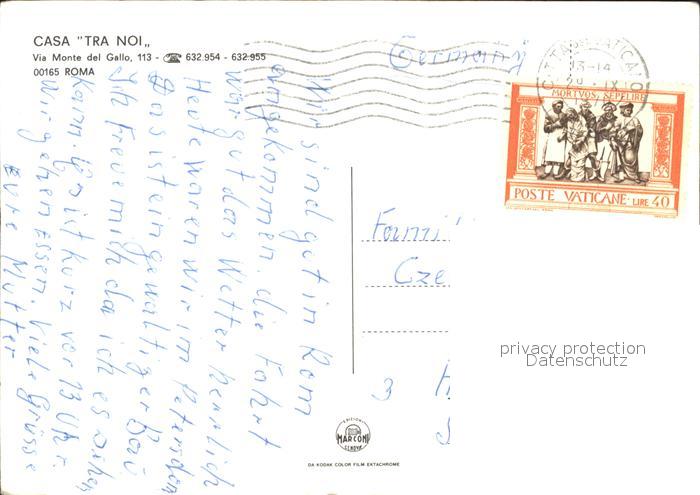 CASA "TRA NOI„
Via Monte del Gallo, 113 - ☎ 632.954 - 632.955
00165 ROMA
Germany
CITTÀ DEL VATICANO
13-14
MORTVOS SEPELIRE
POSTE VATICANE LIRE 40
Wir sind gut in Rom
angekommen, die Fahrt
war gut das Wetter herrlich
Heute waren wir im Petersdom
Das ist ein gewaltiger Bau
Ich freue mich da ich es sehen
kann. Es ist kurz vor 13 Uhr.
wir gehen Essen. Viele Grüsse
Eure Mutter
Famil
Cze
3
privacy protection
Datenschutz
EDIZIONI
MARCONI
GENOVA
DA KODAK COLOR FILM EKTACHROME